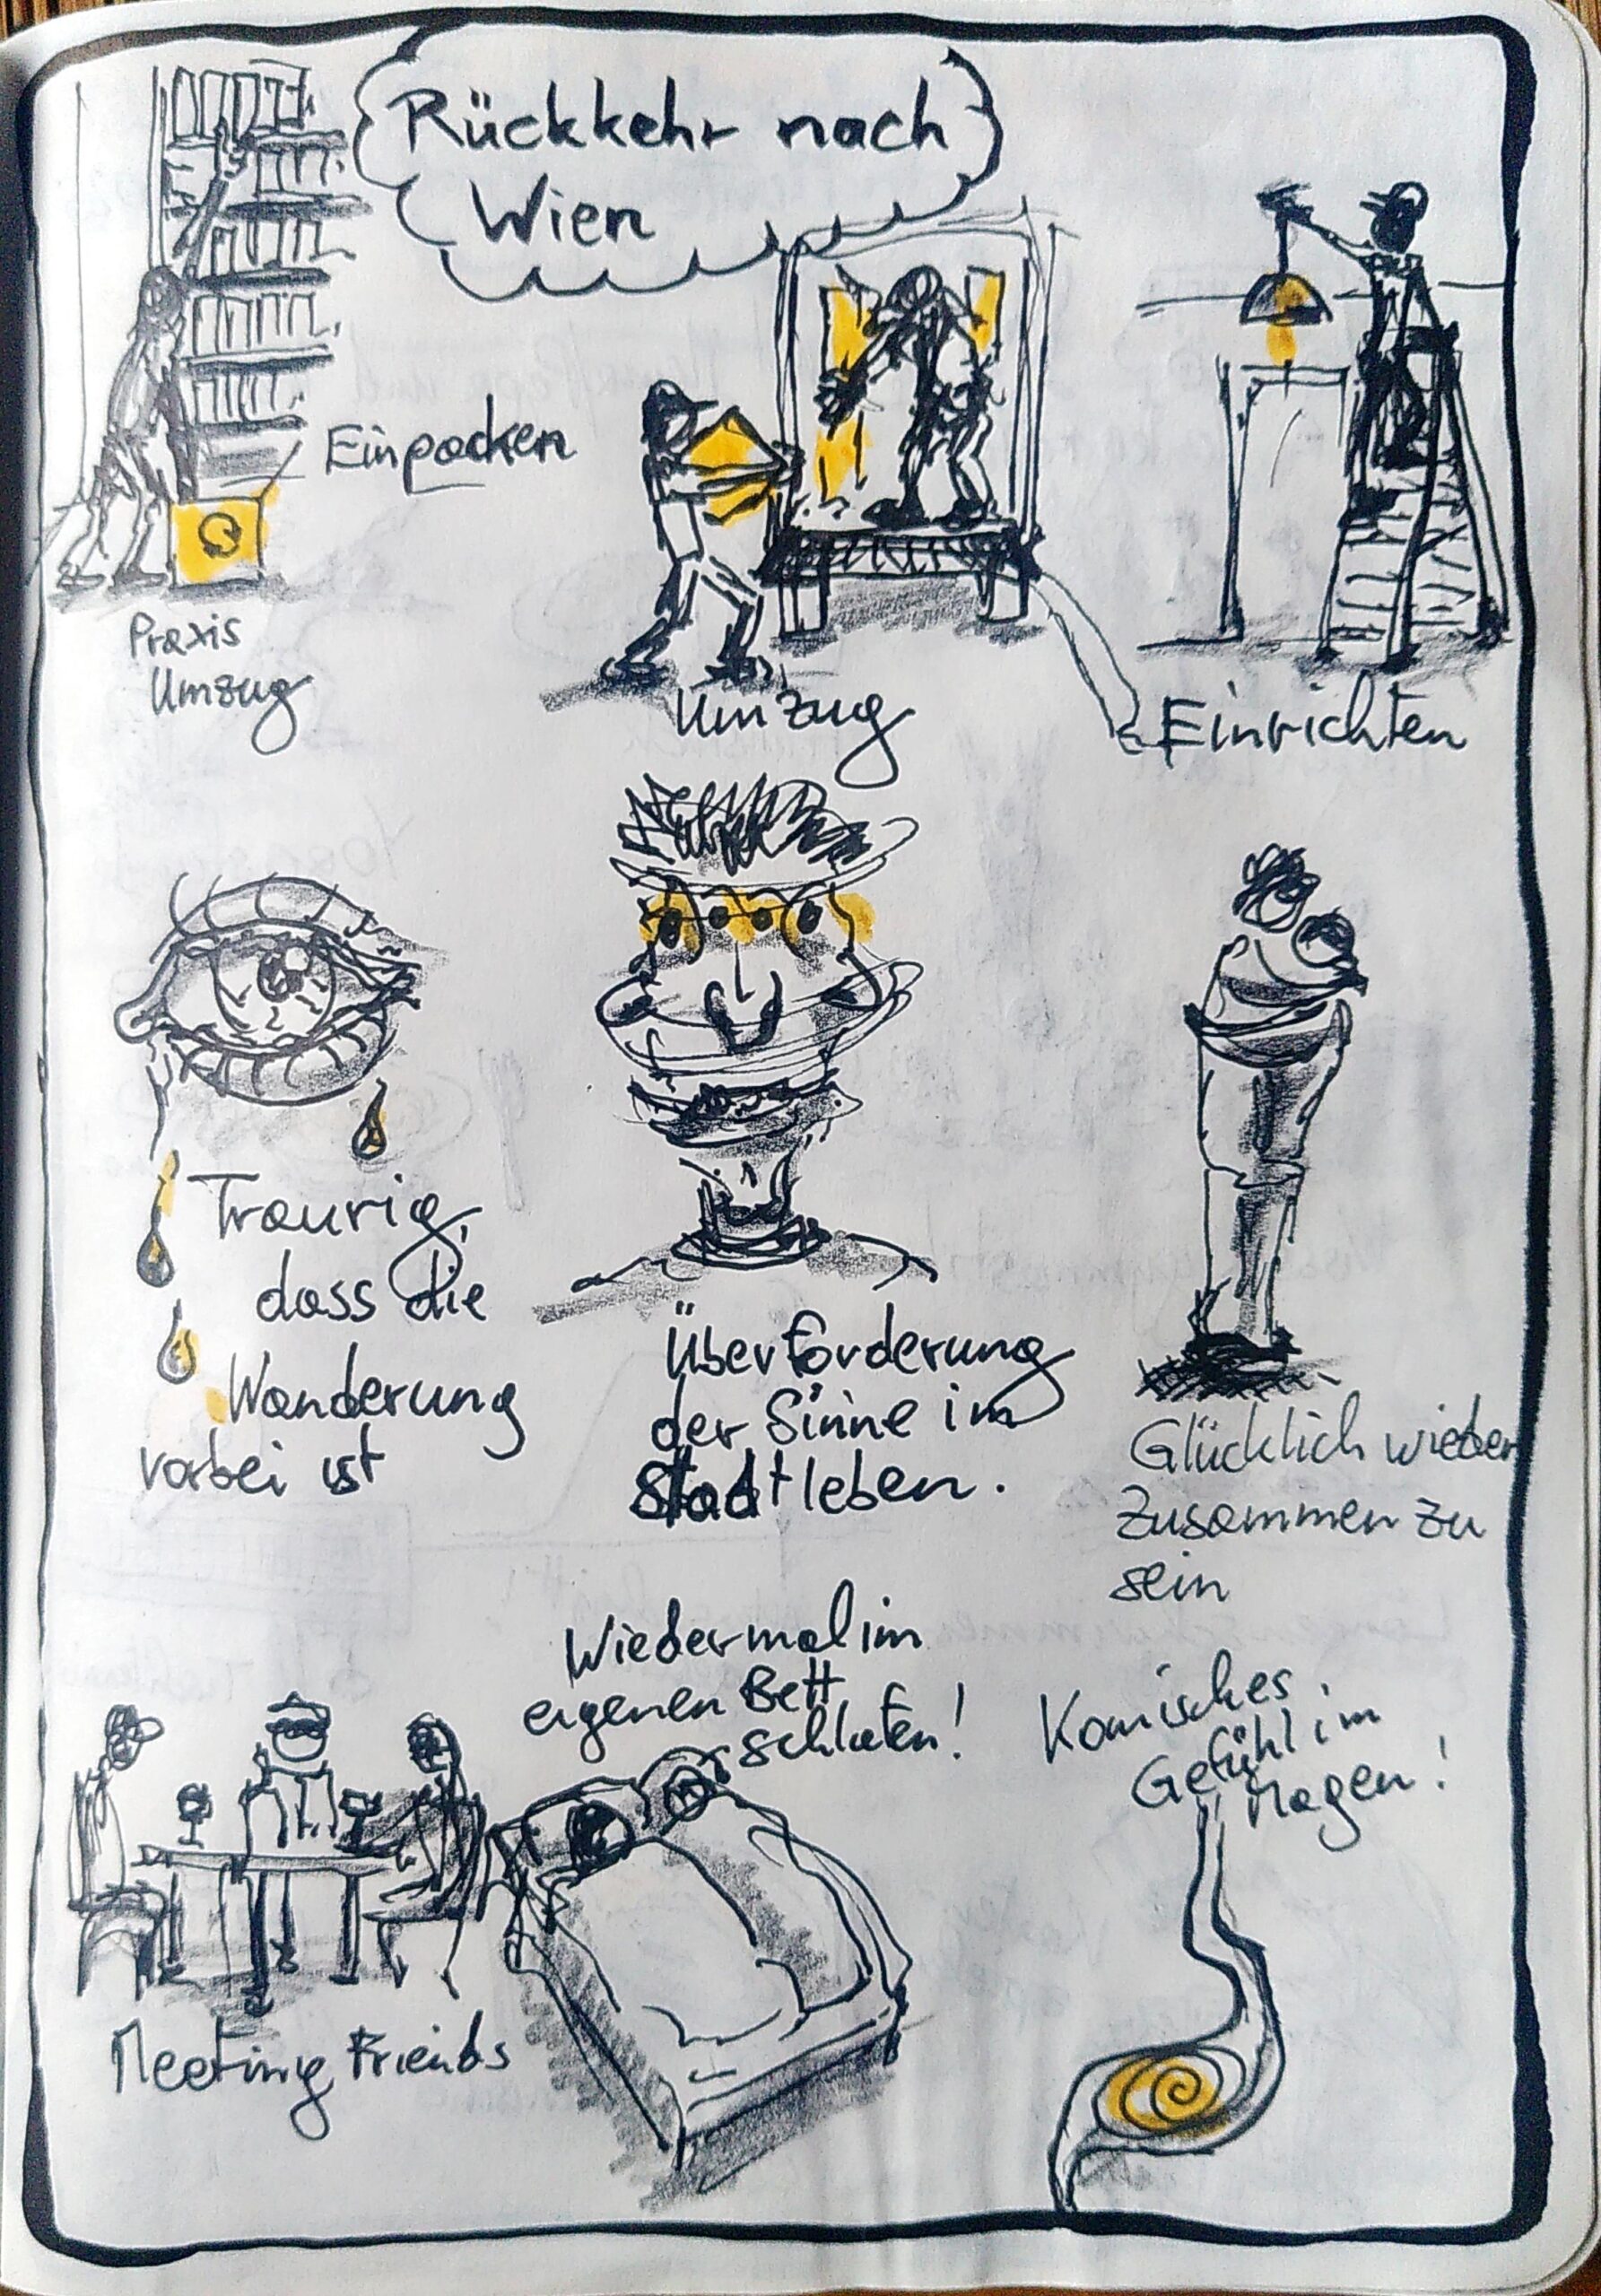 Rückkehr nach
Wien
Einpacken
Praxis
Umzug
Umzug
Einrichten
Traurig,
dass die
Wanderung
vorbei ist
Überforderung
der Sinne im
Stadtleben.
Glücklich wieder
zusammen zu
sein
Wiedermal im
eigenen Bett
schlafen!
Komisches
Gefühl im
Magen!
Meeting Friends